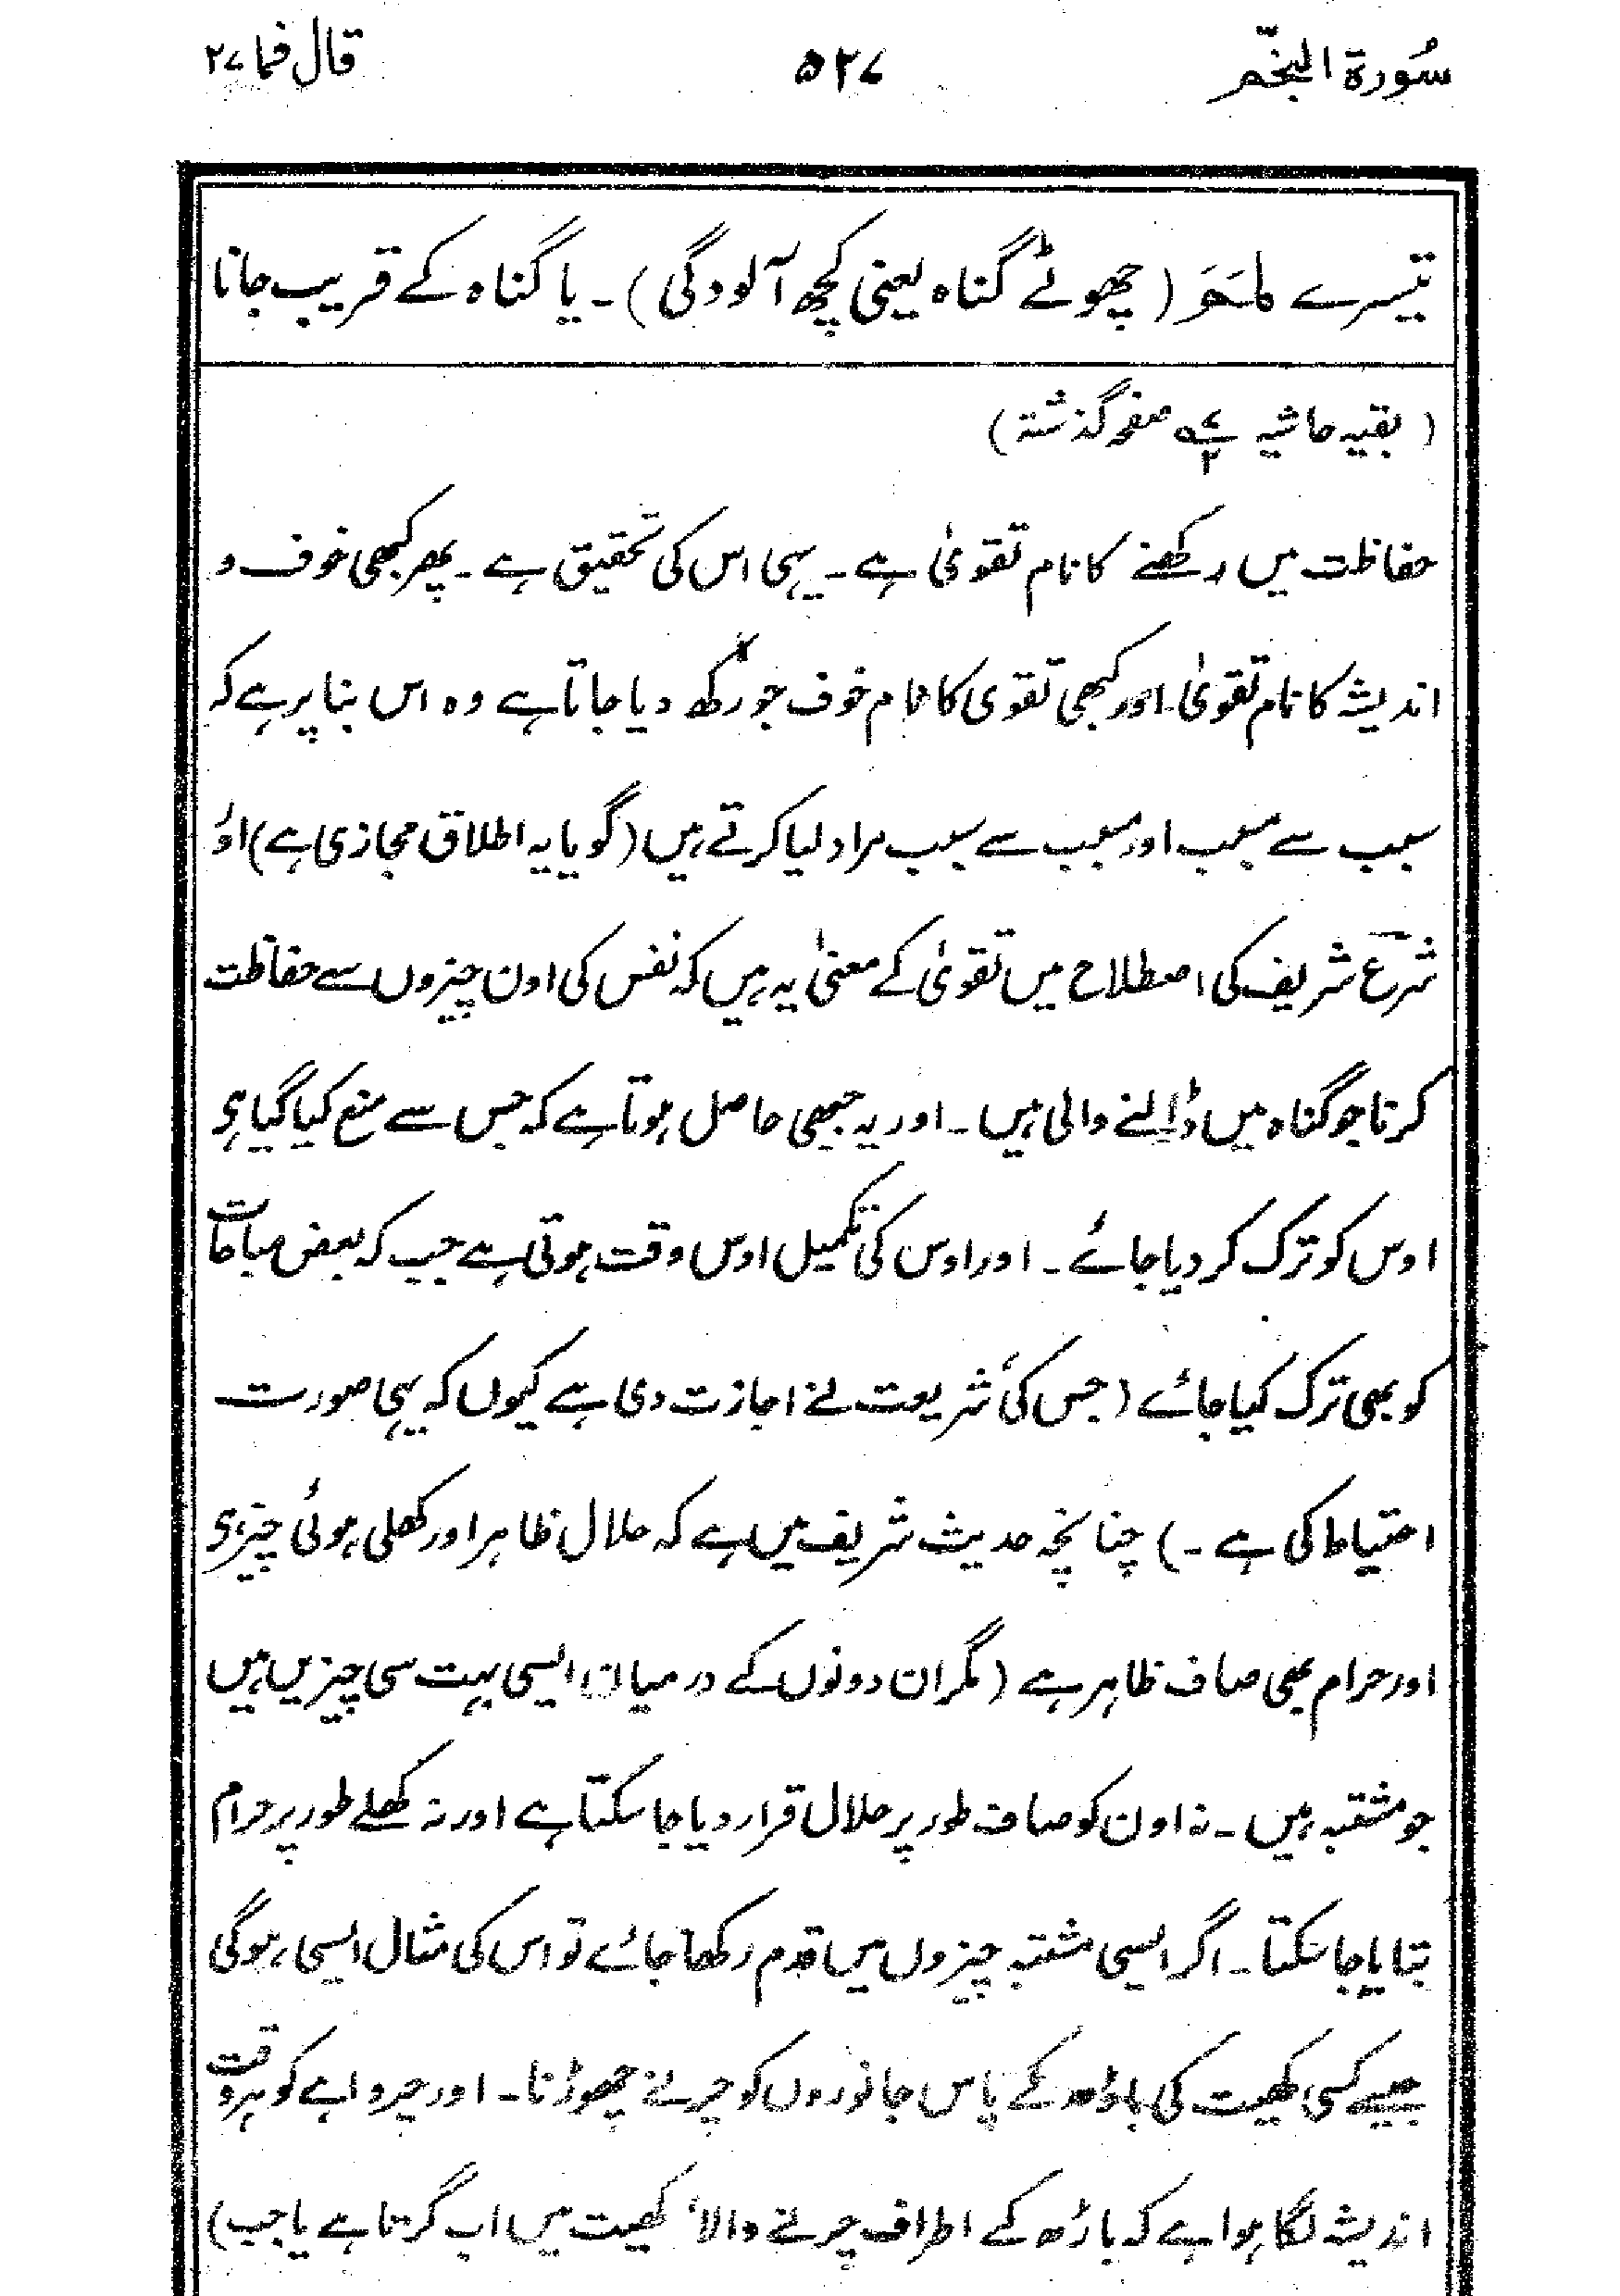 سُورة النجّم
۵۲۷
قال فما ۲۷
تیسرے لَمَمَ (چھوٹے گناہ یعنی کچھ آلودگی) ۔ یا گناہ کے قریب جانا
( بقیہ حاشیہ صفحہ گذشتہ)
حفاظت میں رکھنے کا نام تقویٰ ہے ۔ یہی اس کی تحقیق ہے ۔ پھر کبھی خوف و
اندیشہ کا نام تقویٰ اور کبھی تقوی کا نام خوف جو رکھ دیا جاتا ہے وہ اس بنا پر ہے کہ
سبب سے مسبب اور مسبب سے سبب مراد لیا کرتے ہیں (گویا یہ اطلاق مجازی ہے) اوُ
شرع شریف کی اصطلاح میں تقویٰ کے معنیٰ یہ ہیں کہ نفس کی اون چیزوں سے حفاظت
کرنا جو گناہ میں ڈالنے والی ہیں ۔ اور یہ جبھی حاصل ہوتا ہے کہ جس سے منع کیا گیا ہی
اوس کو ترک کر دیا جائے ۔ اور اوس کی تکمیل اوس وقت ہوتی ہے جب کہ بعض مباحات
کو بھی ترک کیا جائے (جس کی شریعت نے اجازت دی ہے کیوں کہ یہی صورت
احتیاط کی ہے ۔) چنانچہ حدیث شریف میں ہے کہ حلال ظاہر اور کھلی ہوئی چیز ہی
اور حرام بھی صاف ظاہر ہے (مگر ان دونوں کے درمیان ایسی بہت سی چیزیں ہیں
جو مشتبہ ہیں ۔ نہ اون کو صاف طور پر حلال قرار دیا جا سکتا ہے اور نہ کھلے طور پر حرام
بتایا جا سکتا ۔ اگر ایسی مشتبہ چیزوں میں قدم رکھا جائے تو اس کی مثال ایسی ہوگی
جیسے کسی کھیت کی باڑھ کے پاس جانوروں کو چرنے چھوڑنا ۔ اور چرواہے کو ہر وقت
اندیشہ لگا ہوا ہے کہ باڑھ کے اطراف چرنے والا، کھیت میں اب گرتا ہے یا جب)